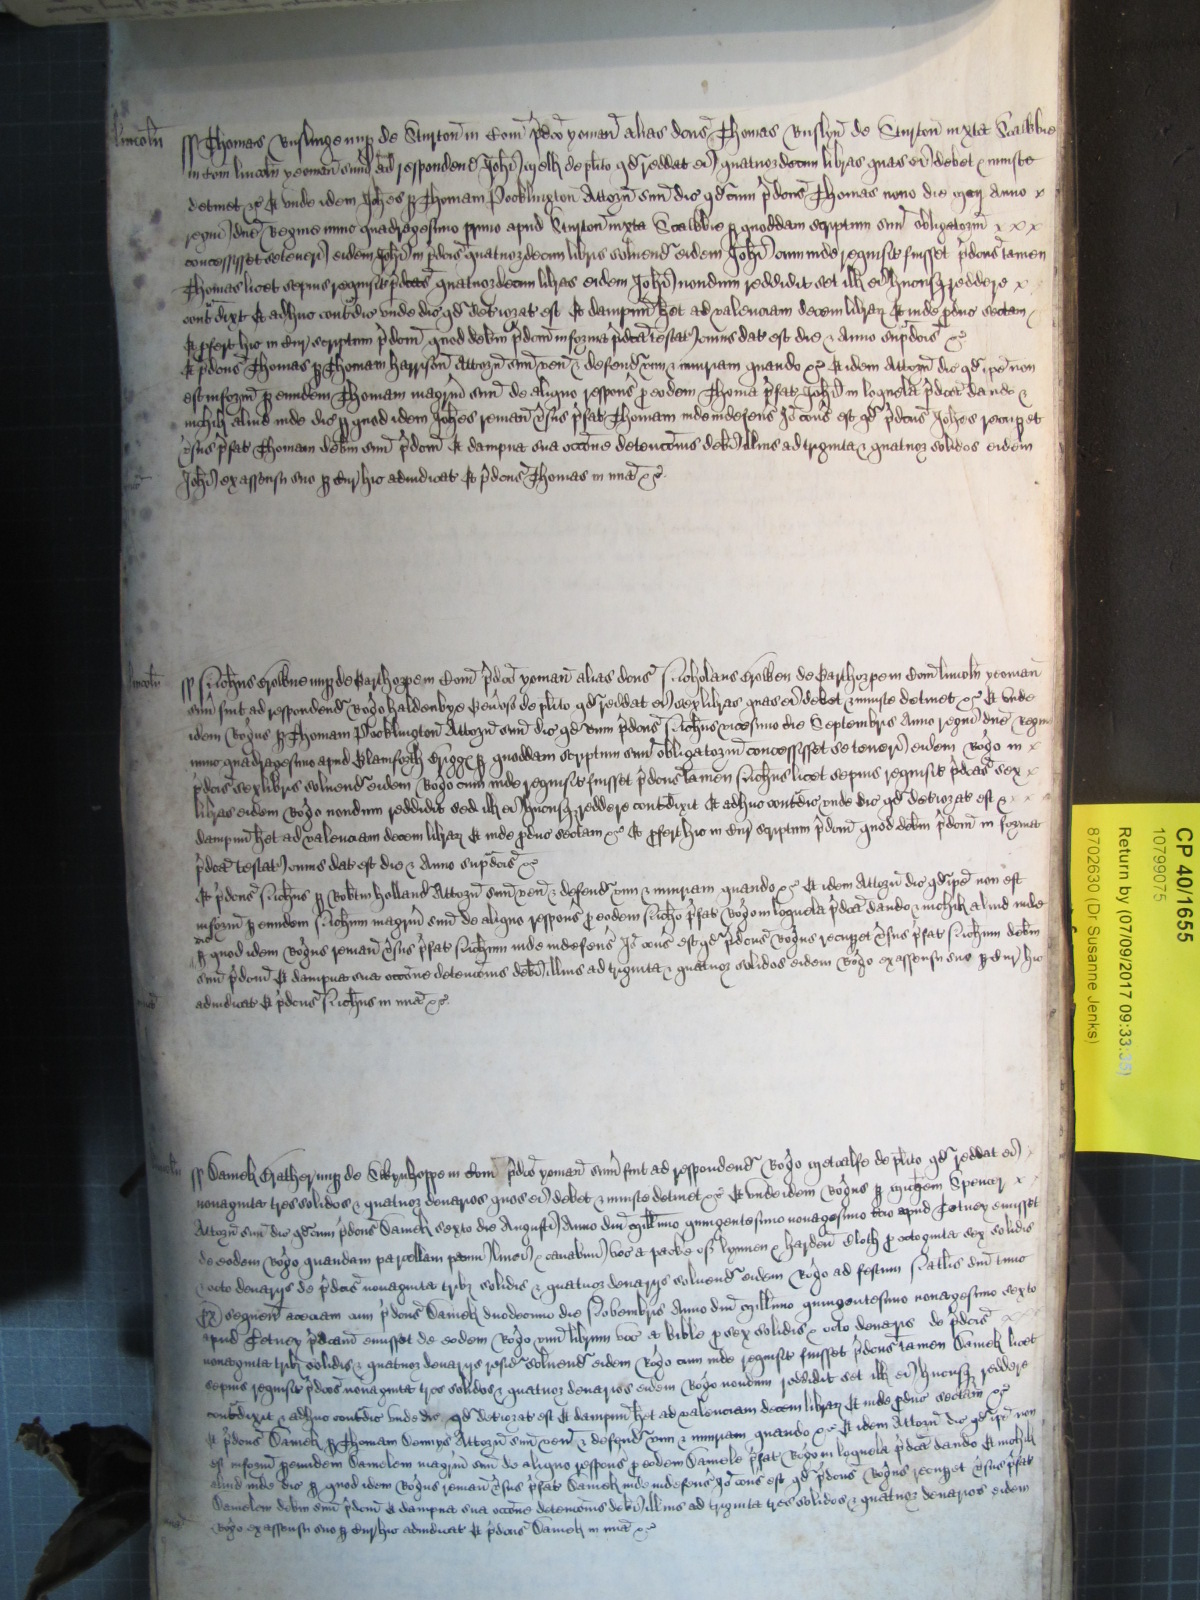 Lincoln
Thomas de Sturton in Com pdco yoman alias dcus Thomas de Sturton iuxta
in Com Lincoln yeoman sum ad respondend Johi de plito qd reddat ei quatuordecim libras quas ei debet & iniuste
detinet &c Et unde idem Johes p Thomam Pocklington Attorn suu dic qd cum pdcus Thomas nono die Anno
regni dne Regine nunc quadragesimo primo apud Sturton iuxta p quoddam scriptum suu obligatorm
concessisset se teneri eidem Johi in pdcis quatuordecim libris solvend eidem Johi cum inde requisit fuisset pdcus tamen
Thomas licet sepius requisit pdcas quatuordecim libras eidem Johi nondum reddidit set ill ei hucusq reddere
contdixit Et adhuc contdic unde dic qd deteriorat est Et dampnu het ad valenciam decem librar Et inde pduc sectam
Et pfert hic in Cur scriptum pdcm quod debm pdcm in forma pdca testat cuius dat est die & Anno supdcis &c
Et pdcus Thomas p Thomam Harrison Attorn suu ven & defend vim & iniuriam quando &c Et idem Attorn dic qd ipe non
est informat p eundem Thomam magrm suu de aliquo respons p eodem Thoma pfat Johi in loquela pdca dando &
nichil aliud inde dic p quod idem Johes reman vsus pfat Thomam inde indefens Io cons est qd pdcus Johes recupet
vsus pfat Thomam debm suu pdcm Et dampna sua occone detencionis debi illius ad triginta & quatuor solidos eidem
Johi ex assensu suo p Cur hic adiudicat Et pdcus Thomas in mia &c
Lincoln
Nichus nup de Barthorpe in Com pdco yoman alias dcus Nicholaus de Barthorpe in Com Lincoln yeoman
sum fuit ad respondend Rogo Haldenbye de plito qd reddat ei sex libras quas ei debet & iniuste detinet &c Et unde
idem Rogus p Thomam Pocklington Attorn suu dic qd cum pdcus Nichus vicesimo die Septembris Anno regni dne Regine
nunc quadragesimo apud Glamforth Brigge p quoddam scriptum suu obligatorm concessisset se teneri eidem Rogo in
pdcis sex libris solvend eidem Rogo cum inde requisit fuisset pdcus tamen Nichus licet sepius requisit pdcas sex
libras eidem Rogo nondum reddidit sed ill ei hucusq reddere contdixit Et adhuc contdic unde dic qd deteriorat est &
dampnu het ad valenciam decem librar Et inde pduc sectam &c Et pfert hic in Cur scriptum pdcm quod debm pdcm in forma
pdca testat cuius dat est die & Anno supdcis &c
Et pdcus Nichus p Robtm Holland Attorn suu ven & defend vim & iniuriam quando &c Et idem Attorn dic qd ipe non est
informat p eundem Nichum magrm suu de aliquo respons p eodem Nicho pfat Rogo in loquela pdca dando & nichil aliud inde
dic
p quod idem Rogus reman vsus pfat Nichum inde indefens Io cons est qd pdcus Rogus recupet vsus pfat Nichum debm
suu pdcm Et dampna sua occone detencionis debi illius ad triginta & quatuor solidos eidem Rogo ex assensu suo p Cur hic
adiudicat Et pdcus Nichus in mia &c
Daniell nup de in Com pdco yoman sum fuit ad respondend Rogo Metcalfe de plito qd reddat ei
nonaginta tres solidos & quatuor denarios quos ei debet & iniuste detinet &c Et unde idem Rogus p Spencer
Attorn suu dic qd cum pdcus Daniell sexto die Augusti Anno dni millimo quingentesimo nonagesimo apud emisset
de eodem Rogo quandam parcellam panni linei & canabini voc a packe of lynnen & harden cloth p octoginta sex solidis
& octo denarijs de pdcis nonaginta trib solidis & quatuor denarijs solvend eidem Rogo ad festum Natlis dni tunc
px sequen cum pdcus Daniell duodecimo die Novembris Anno dni millimo quingentesimo nonagesimo sexto
apud pdcam emisset de eodem Rogo unu librum voc a Bible p sex solidis & octo denarijs de pdcis
nonaginta trib solidis & quatuor denarijs resid solvend eidem Rogo cum inde requisit fuisset pdcus tamen Daniell licet
sepius requisit pdcos nonaginta tres solidos & quatuor denarios eidem Rogo nondum reddidit set ill ei hucusq reddere
contdixit & adhuc contdic unde dic qd deteriorat est Et dampnu het ad valenciam decem librar Et inde pduc sectam &c
Et pdcus Daniell p Thomam Attorn suu ven & defend vim & iniuriam quando &c Et idem Attorn dic qd ipe non
est informat p eundem Danielem magrm suu de aliquo respons p eodem Daniele pfat Rogo in loquela pdca dando Et nichil
aliud inde dic p quod idem Rogus reman vsus pfat Daniell inde indefens Io cons est qd pdcus Rogus recupet vsus pfat
Danielem debm suu pdcm Et dampna sua occone detencionis debi illius ad triginta tres solidos & quatuor denarios eidem
Rogo ex assensu suo p Cur hic adiudicat Et pdcus Daniell in mia &c
CP 40/1655
10799075
Return by (07/09/2017 09:33:35)
8702630 (Dr Susanne Jenks)